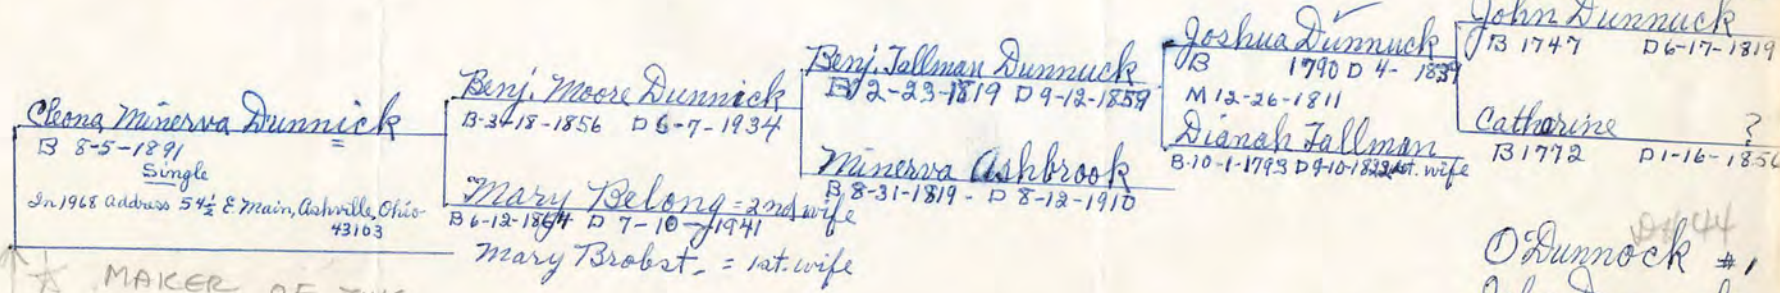 Cleona Minerva Dunnick
B 8-5-1891
Single
In 1968 Address 54½ E. Main, Ashville, Ohio
43103
Benj. Moore Dunnick
B-3-18-1856 D 6-7-1934
Mary Belong = 2nd wife
B 6-12-1864 D 7-10-1941
Mary Brobst = 1st. wife
Benj. Tallman Dunnuck
B 2-23-1819 D 9-12-1859
Minerva Ashbrook
B. 8-31-1819 - D 8-12-1910
Joshua Dunnuck
B 1790 D 4- 1834
M 12-26-1811
Dianah Tallman
B-10-1-1793 D 9-10-1822 1st. wife
John Dunnuck
B 1747 D 6-17-1819
Catharine ?
B 1772 D 1-16-1856
O'Dunnock #1
MAKER OF